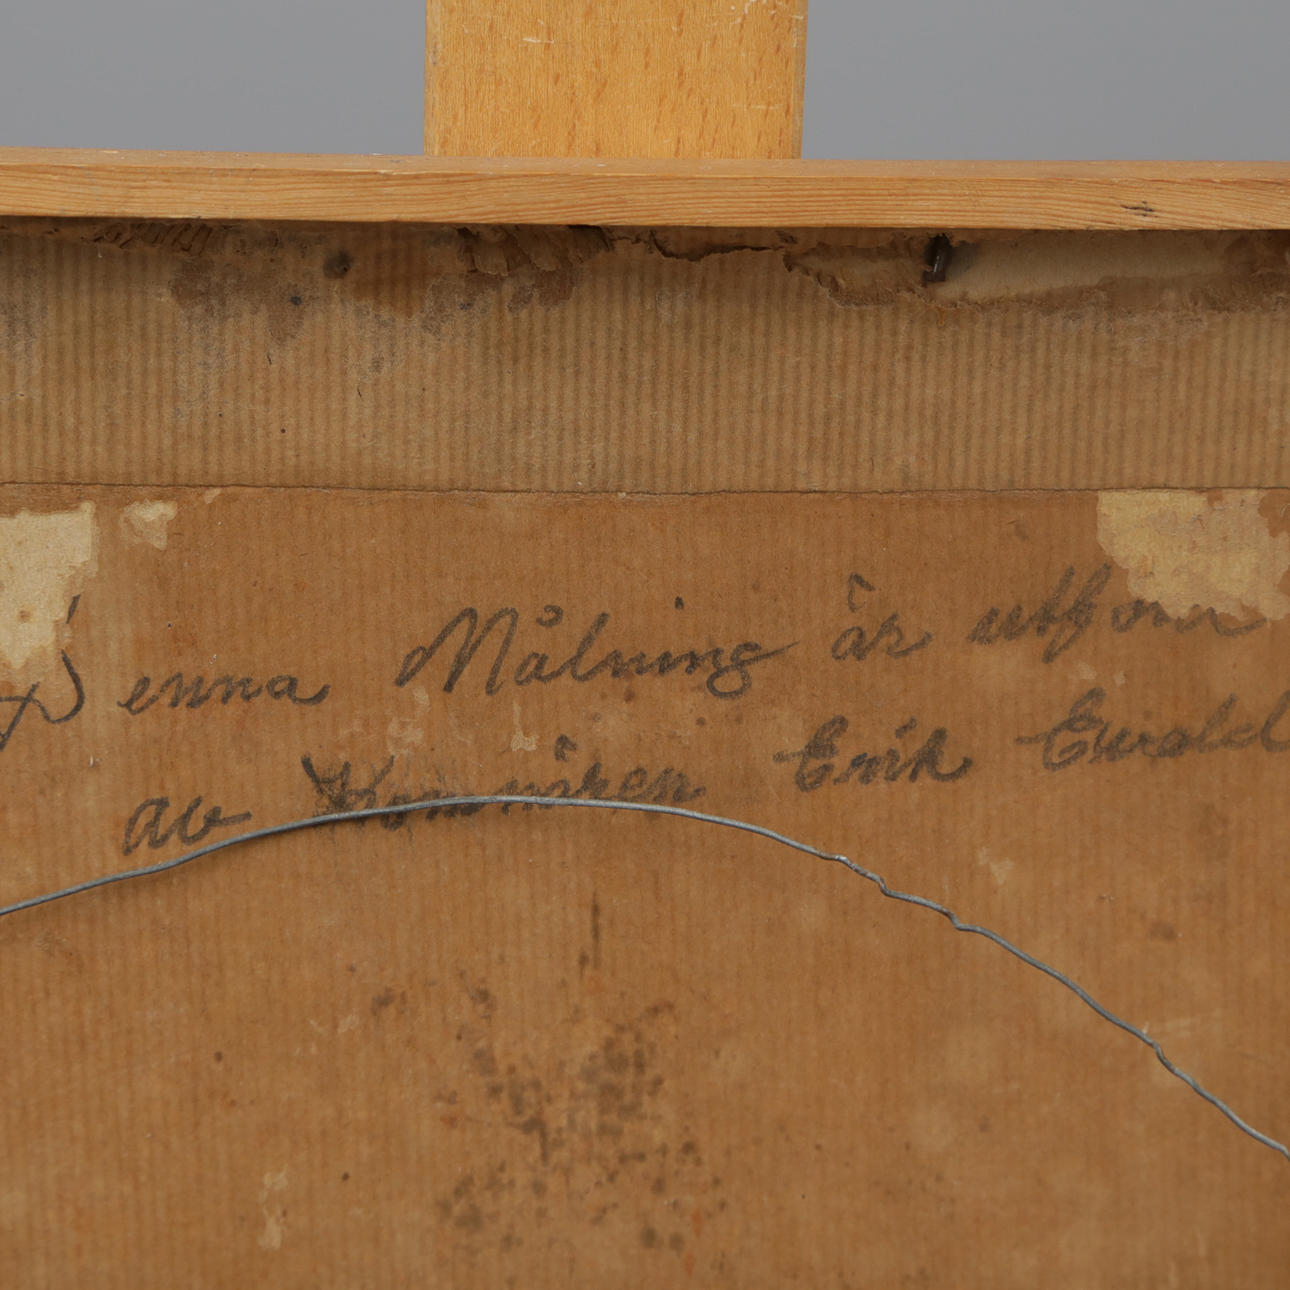 Denna Målning är utförd
av Konnären Erik Ewald